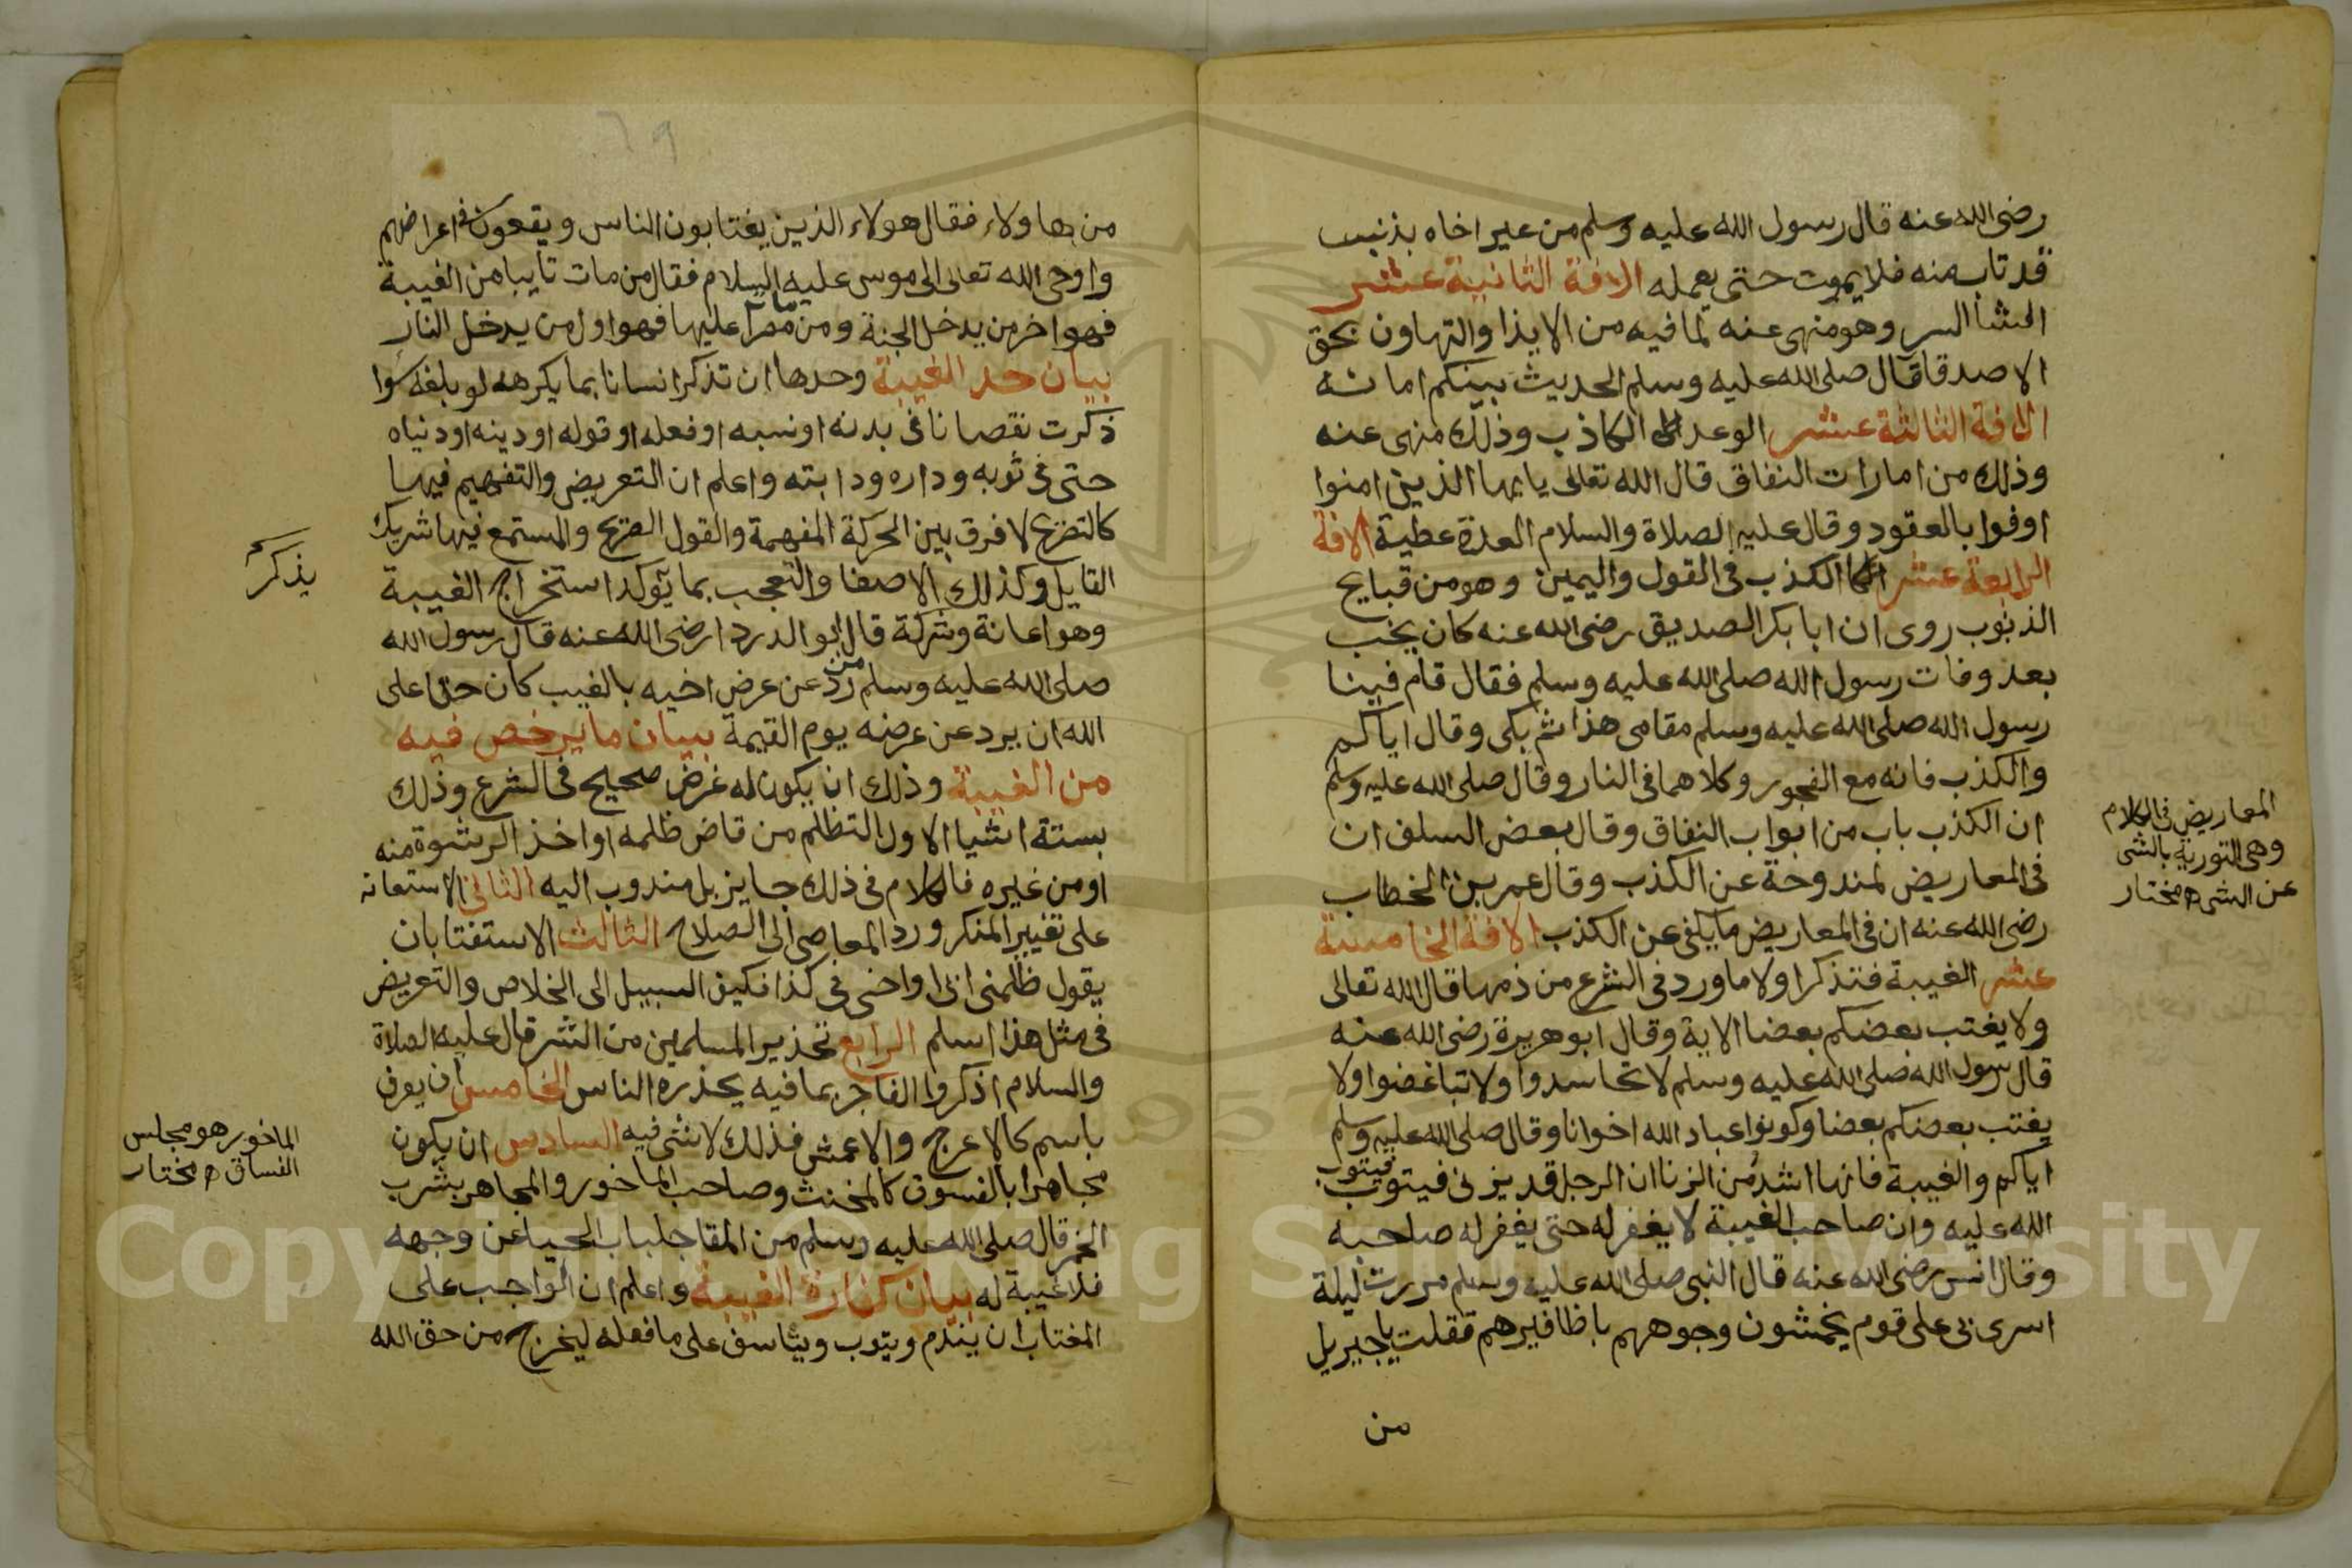 رضى الله عنه قال رسول الله عليه وسلم من عير اخاه بذنب
قد تاب منه فلا يموت حتى يعمله الافة الثانية عشر
افشا السر وهو منهى عنه لما فيه من الايذا والتهاون بحق
الاصدقا قال صلى الله عليه وسلم الحديث بينكم امانة
الافة الثالثة عشر الوعد الكاذب وذلك منهى عنه
وذلك من امارات النفاق قال الله تعالى يايها الذين امنوا
اوفوا بالعقود وقال عليه الصلاة والسلام العدة عطية الافة
الرابعة عشر الكذب فى القول واليمين وهو من قبايح
الذنوب روى ان ابا بكر الصديق رضى الله عنه كان يخب
بعد وفات رسول الله صلى الله عليه وسلم فقال قام فينا
رسول الله صلى الله عليه وسلم مقامى هذا ثم بكى وقال اياكم
والكذب فانه مع الفجور وكلاهما فى النار وقال صلى الله عليه وسلم
ان الكذب باب من ابواب النفاق وقال بعض السلف ان
فى المعاريض لمندوحة عن الكذب وقال عمر بن الخطاب
رضى الله عنه ان فى المعاريض ما يكفى عن الكذب الافة الخامسة
عشر الغيبة فنذكر اولا ما ورد فى الشرع من ذمها قال الله تعالى
ولا يغتب بعضكم بعضا الاية وقال ابو هريرة رضى الله عنه
قال رسول الله صلى الله عليه وسلم لا تحاسدوا ولا تباغضوا ولا
يغتب بعضكم بعضا وكونوا عباد الله اخوانا وقال صلى الله عليه وسلم
اياكم والغيبة فانها اشد من الزنا ان الرجل قد يزنى فيتوب فيتوب
الله عليه وان صاحب الغيبة لا يغفر له حتى يغفر له صاحبه
وقال انس رضى الله عنه قال النبى صلى الله عليه وسلم مررت ليلة
اسرى بى على قوم يخمشون وجوههم باظافيرهم فقلت يا جبريل
من
المعاريض فى الكلام
وهى التورية بالشى
عن الشى ه مختار
من هاولاء فقال هولاء الذين يغتابون الناس ويقعون فى اعراضهم
واوحى الله تعالى الى موسى عليه السلام فقال من مات تايبا من الغيبة
فهو اخر من يدخل الجنة ومن مات مصرا عليها فهو اول من يدخل النار
بيان حد الغيبة وحدها ان تذكر انسانا بما يكرهه لو بلغه سوا
ذكرت نقصانا فى بدنه او نسبه او فعله او قوله او دينه او دنياه
حتى فى ثوبه وداره ودابته واعلم ان التعريض والتفهيم فيها
كالتصريح لا فرق بين الحركة المفهمة والقول الصريح والمستمع فيها شريك
القايل وكذلك الاصغا والتعجب بما يؤكد استخراج الغيبة
وهو اعانة وشركة قال ابو الدردا رضى الله عنه قال رسول الله
صلى الله عليه وسلم من رد عن عرض اخيه بالغيب كان حقا على
الله ان يرد عن عرضه يوم القيمة بيان ما يرخص فيه
من الغيبة وذلك ان يكون له غرض صحيح فى الشرع وذلك
بستة اشيا الاول التظلم من قاض ظلمه او اخذ الرشوة منه
او من غيره فالكلام فى ذلك جايز بل مندوب اليه الثانى الاستعانه
على تغيير المنكر ورد المعاصى الى الصلاح الثالث الاستفتا بان
يقول ظلمنى ابى او اخى فى كذا فكيف السبيل الى الخلاص والتعريض
فى مثل هذا اسلم الرابع تحذير المسلمين من الشر قال عليه الصلاة
والسلام اذكروا الفاجر بما فيه يحذره الناس الخامس ان يعرف
باسم كالاعرج والاعمش فذلك لا شى فيه السادس ان يكون
مجاهرا بالفسوق كالمخنث وصاحب الماخور والمجاهر بشرب
الخمر قال صلى الله عليه وسلم من القا جلباب الحيا عن وجهه
فلا غيبة له بيان كفارة الغيبة واعلم ان الواجب على
المغتاب ان يندم ويتوب ويتاسف على ما فعله ليخرج من حق الله
يذكر
الماخور هو مجلس
الفساق ه مختار
Copyright © King Saud University